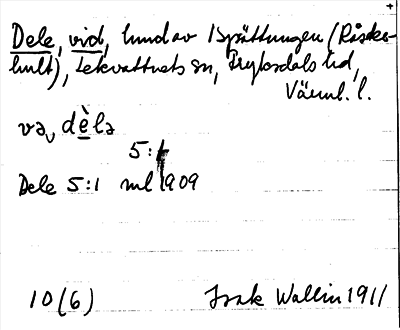 Dele, vid, hmd av Spättungen (Röske-
hult), Lekvattnets sn, Fryksdals hd,
Värml. l.
və, dèlə
5:1
Dele 5:1 ml 1909
10(6) Isak Wallin 1911